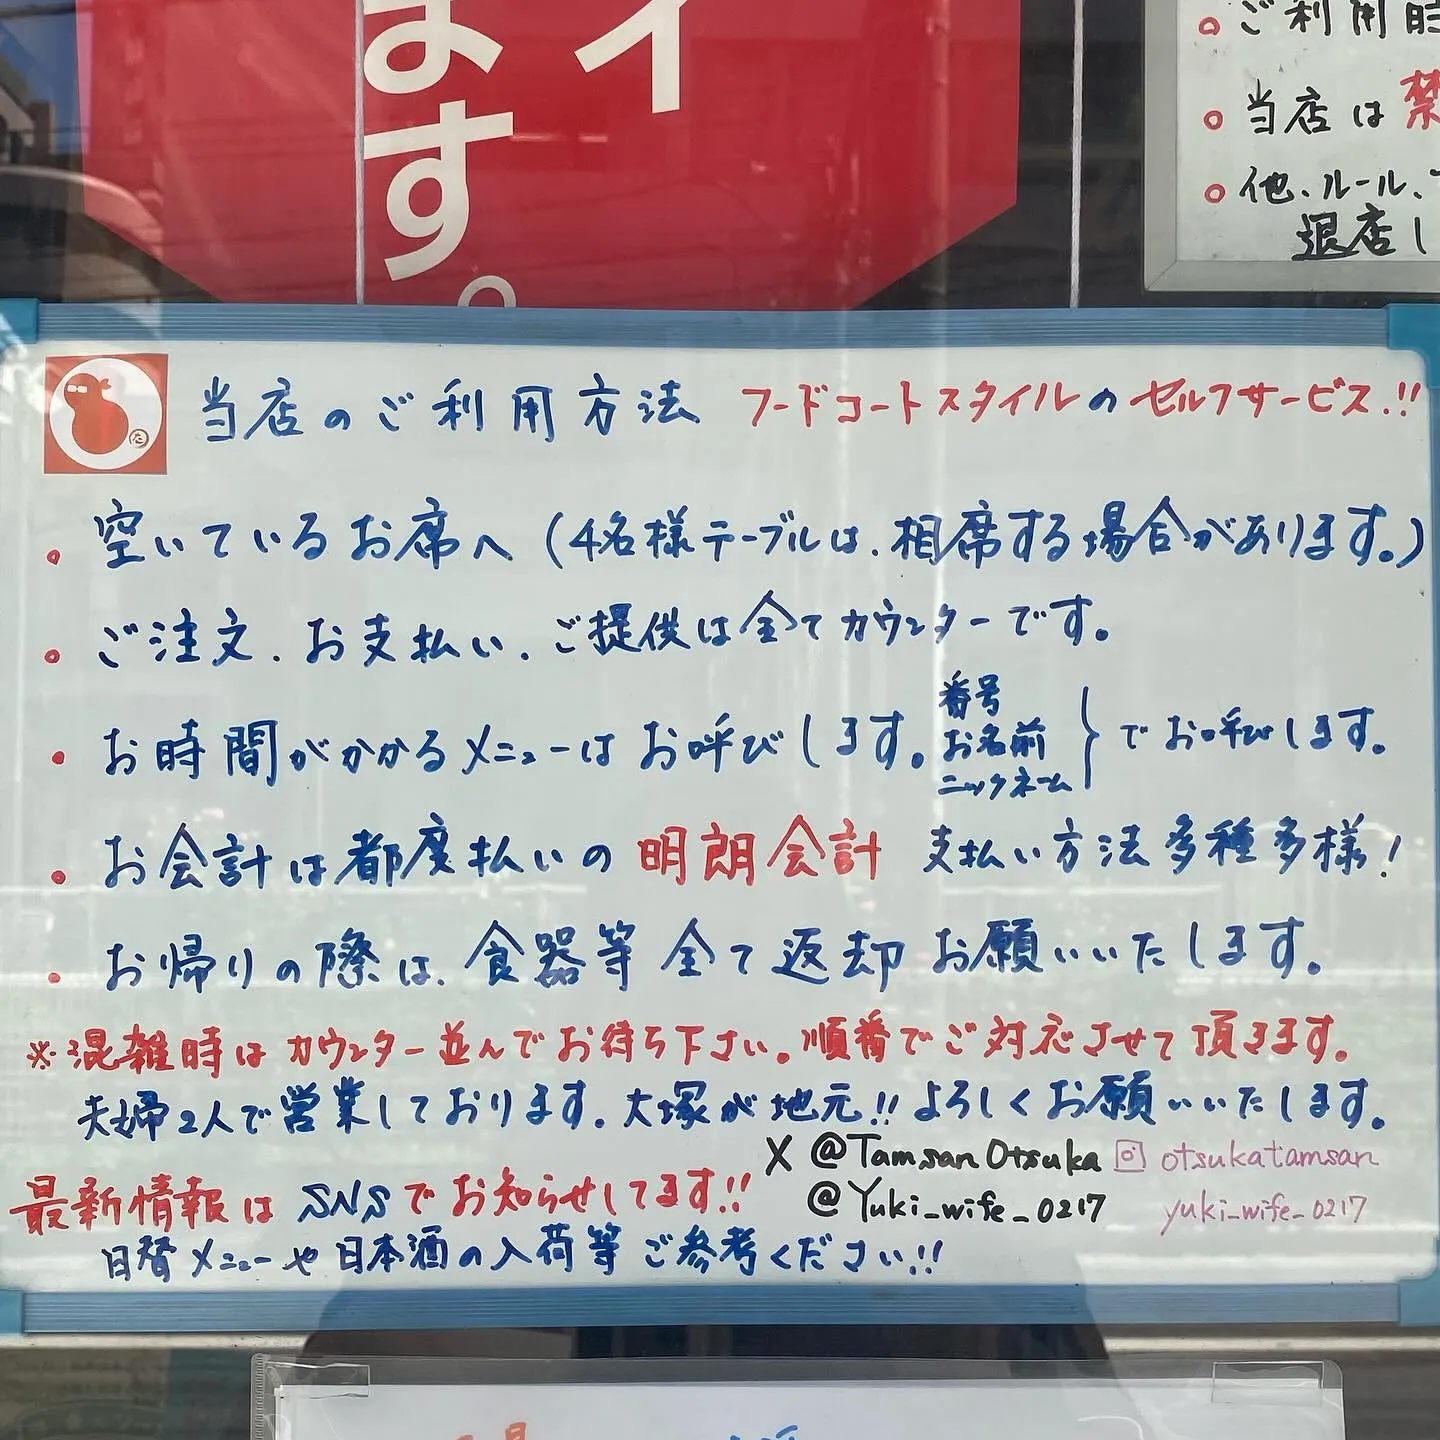 ます。
イ
ご利用時
当店は禁
他、ルール、
退店し
当店のご利用方法 フードコートスタイルのセルフサービス.!!
・空いているお席へ(4名様テーブルは、相席する場合があります。)
・ご注文、お支払い、ご提供は全てカウンターです。
・お時間がかかるメニューはお呼びします。番号 お名前 ニックネーム }でお呼びします。
・お会計は都度払いの明朗会計 支払い方法多種多様!
・お帰りの際は、食器等全て返却お願いいたします。
※混雑時はカウンター並んでお待ち下さい。順番でご対応させて頂きます。
夫婦2人で営業しております。大塚が地元!!よろしくお願いいたします。
X @TamsanOtsuka otsukatamsan
@Yuki_wife_0217 yuki_wife_0217
最新情報はSNSでお知らせしてます!!
日替メニューや日本酒の入荷等ご参考ください!!